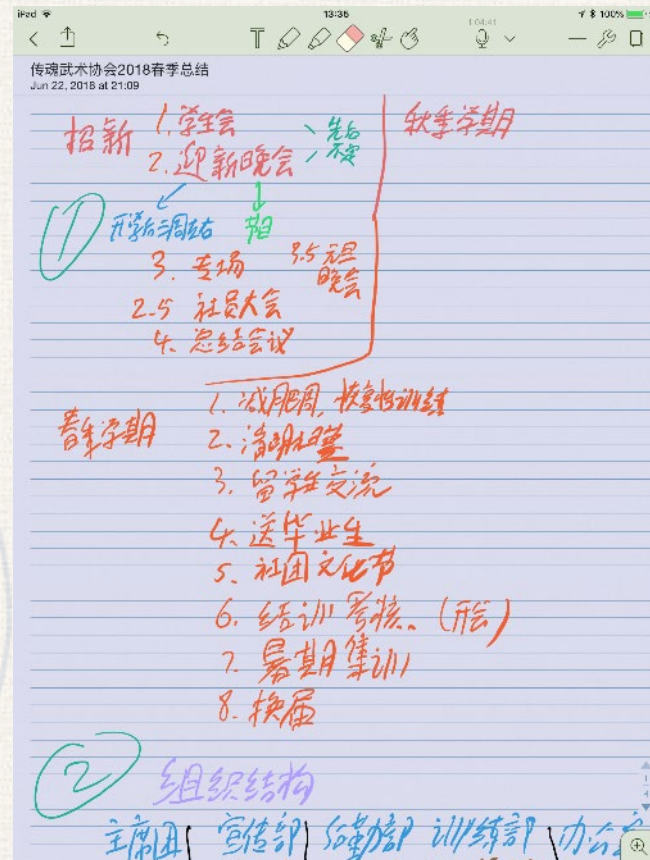 iPad
13:36
100%
1:04:41
传魂武术协会2018春季总结
Jun 22, 2018 at 21:09
招新
1. 学生会
2. 迎新晚会
先后不定
秋季学期
①
开学后三周左右
节目
3. 专场
3.5 元旦晚会
2.5 社员大会
4. 总结会议
春季学期
1. 减肥周, 恢复性训练
2. 清明扫墓
3. 留学生交流
4. 送毕业生
5. 社团文化节
6. 结训考核、(开会)
7. 暑期集训
8. 换届
②
组织结构
主席团 宣传部 后勤部 训练部 办公室